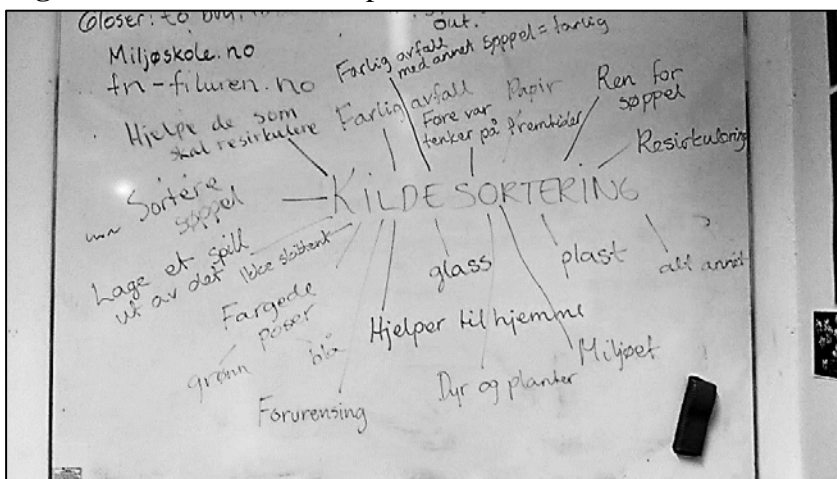 Gloser: to
out.
Miljøskole.no
fn-filuren.no
Farlig avfall
med annet søppel = farlig
Hjelpe de som
skal resirkulere
Farlig avfall
Føre var
tenker på fremtiden
Papir
Ren for
søppel
Resirkulering
Sortere
søppel
KILDESORTERING
Lage et spill
ut av det
Ikke skittent
Fargede
poser
grønn
blå
glass
plast
alt annet
Hjelper til hjemme
Miljøet
Dyr og planter
Forurensing